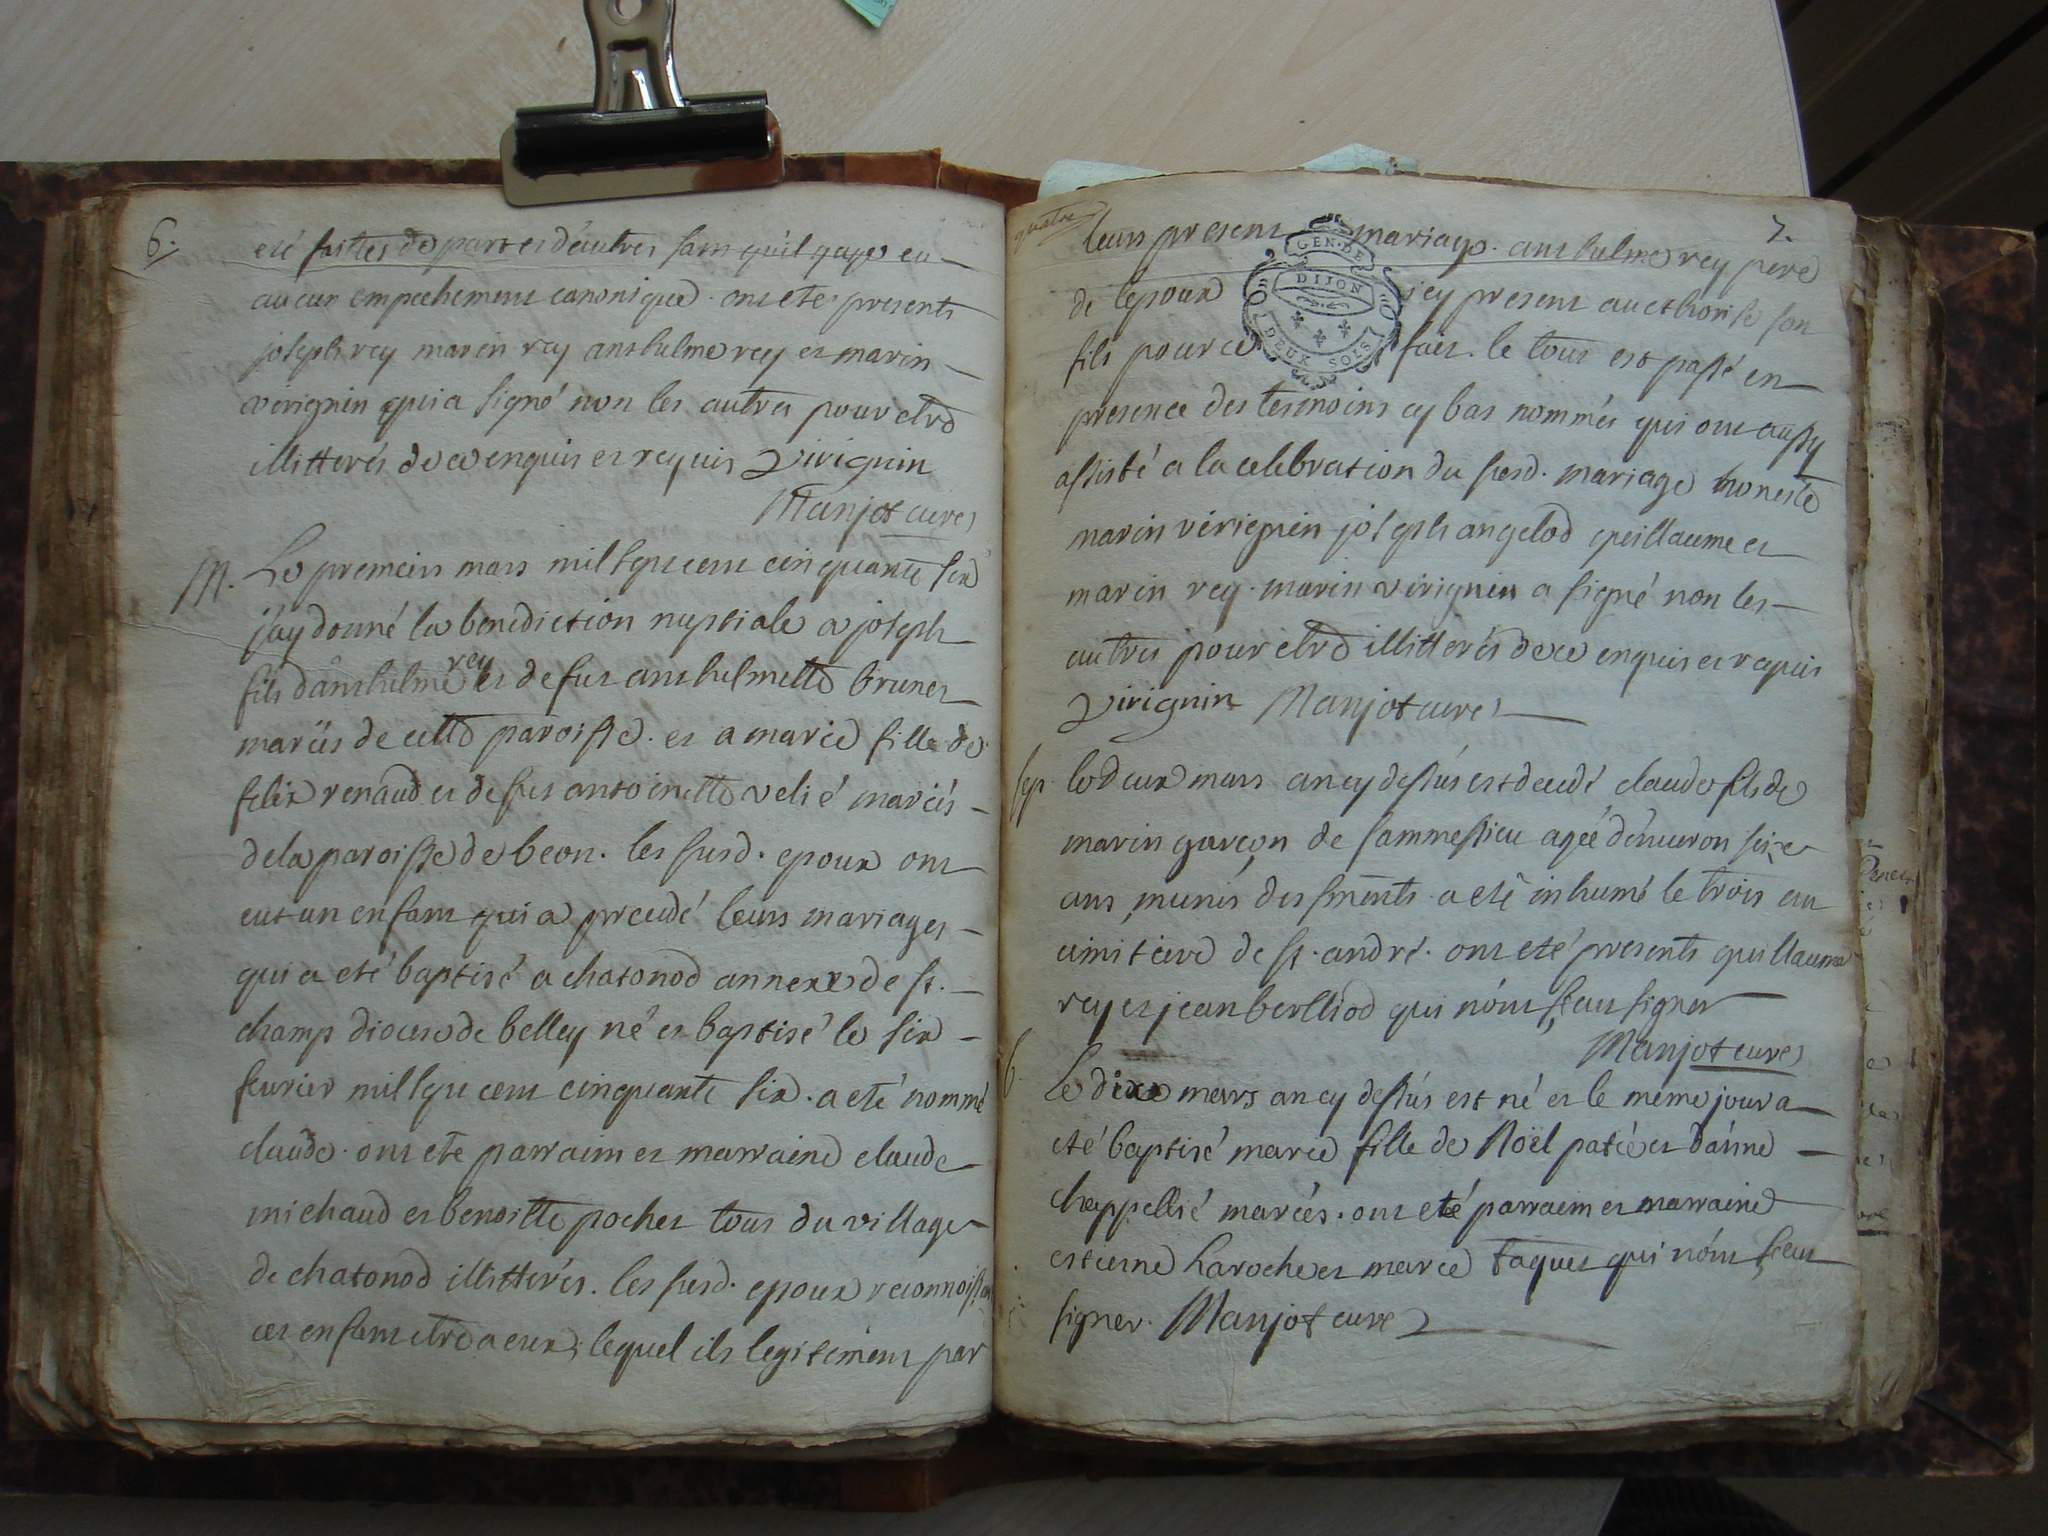 6.
eté faittes de part et d'autres sans qu'il y aye eu
aucun empechement canonique. ont ete presents
joseph rey marin rey anthelme rey et marin
virignin qui a signé non les autres pour etre
illitterés de ce enquis et requis Virignin
Manjot curé
M. Le premeirs mars mil sept cent cinquante six
j'ay donné la benediction nuptiale a joseph
fils d'anthelme rey et de fut anthelmette brunet
mariés de cette paroisse. et a marie fille de
felix renaud et de fut antoinette velié mariés
de la paroisse de beon. les susd. epoux ont
eut un enfant qui a precedé leurs mariages
qui a eté baptisé a chatonod annexe de st.
champ diocese de belley né et baptisé le six
fevrier mil sept cent cinquante six. a eté nommé
claude. ont ete parrain et marraine claude
michaud et benoitte pochet tous du village
de chatonod illitterés. les susd. epoux reconnoissent
cet enfant etre a eux, lequel ils legitiment par
quatre
7.
GEN. DE
DIJON
DEUX SOLS
leurs present mariage. anthelme rey pere
de lepoux icy present aucthorise son
fils pour ce fait. le tout est passé en
presence des tesmoins cy bas nommés qui ont aussy
assisté a la celebration du susd. mariage honeste
marin virignin joseph angelod guillaume et
marin rey. marin virignin a signé non les
autres pour etre illitterés de ce enquis et requis
Virignin Manjot curé
sep. le deux mars an cy dessus est decedé claude fils de
marin garçon de sammessieu agée d'environ seize
ans munis des sments a eté inhumé le trois au
cimitiere de st. andré. ont eté presents guillaume
rey et jean berlliod qui n'ont sceu signer
Manjot curé
b. Le dixe mars an cy dessus est né et le meme jour a
eté baptisé marie fille de Noël patée et d'anne
chappellié mariés. ont eté parrain et marraine
estiene Laroche et marie taquet qui n'ont sceu
signer. Manjot curé